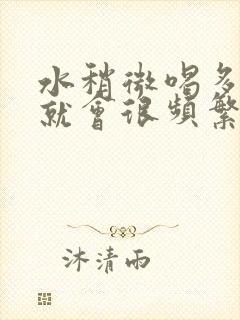 水稍微喝多
就會很頻繁
沐清雨